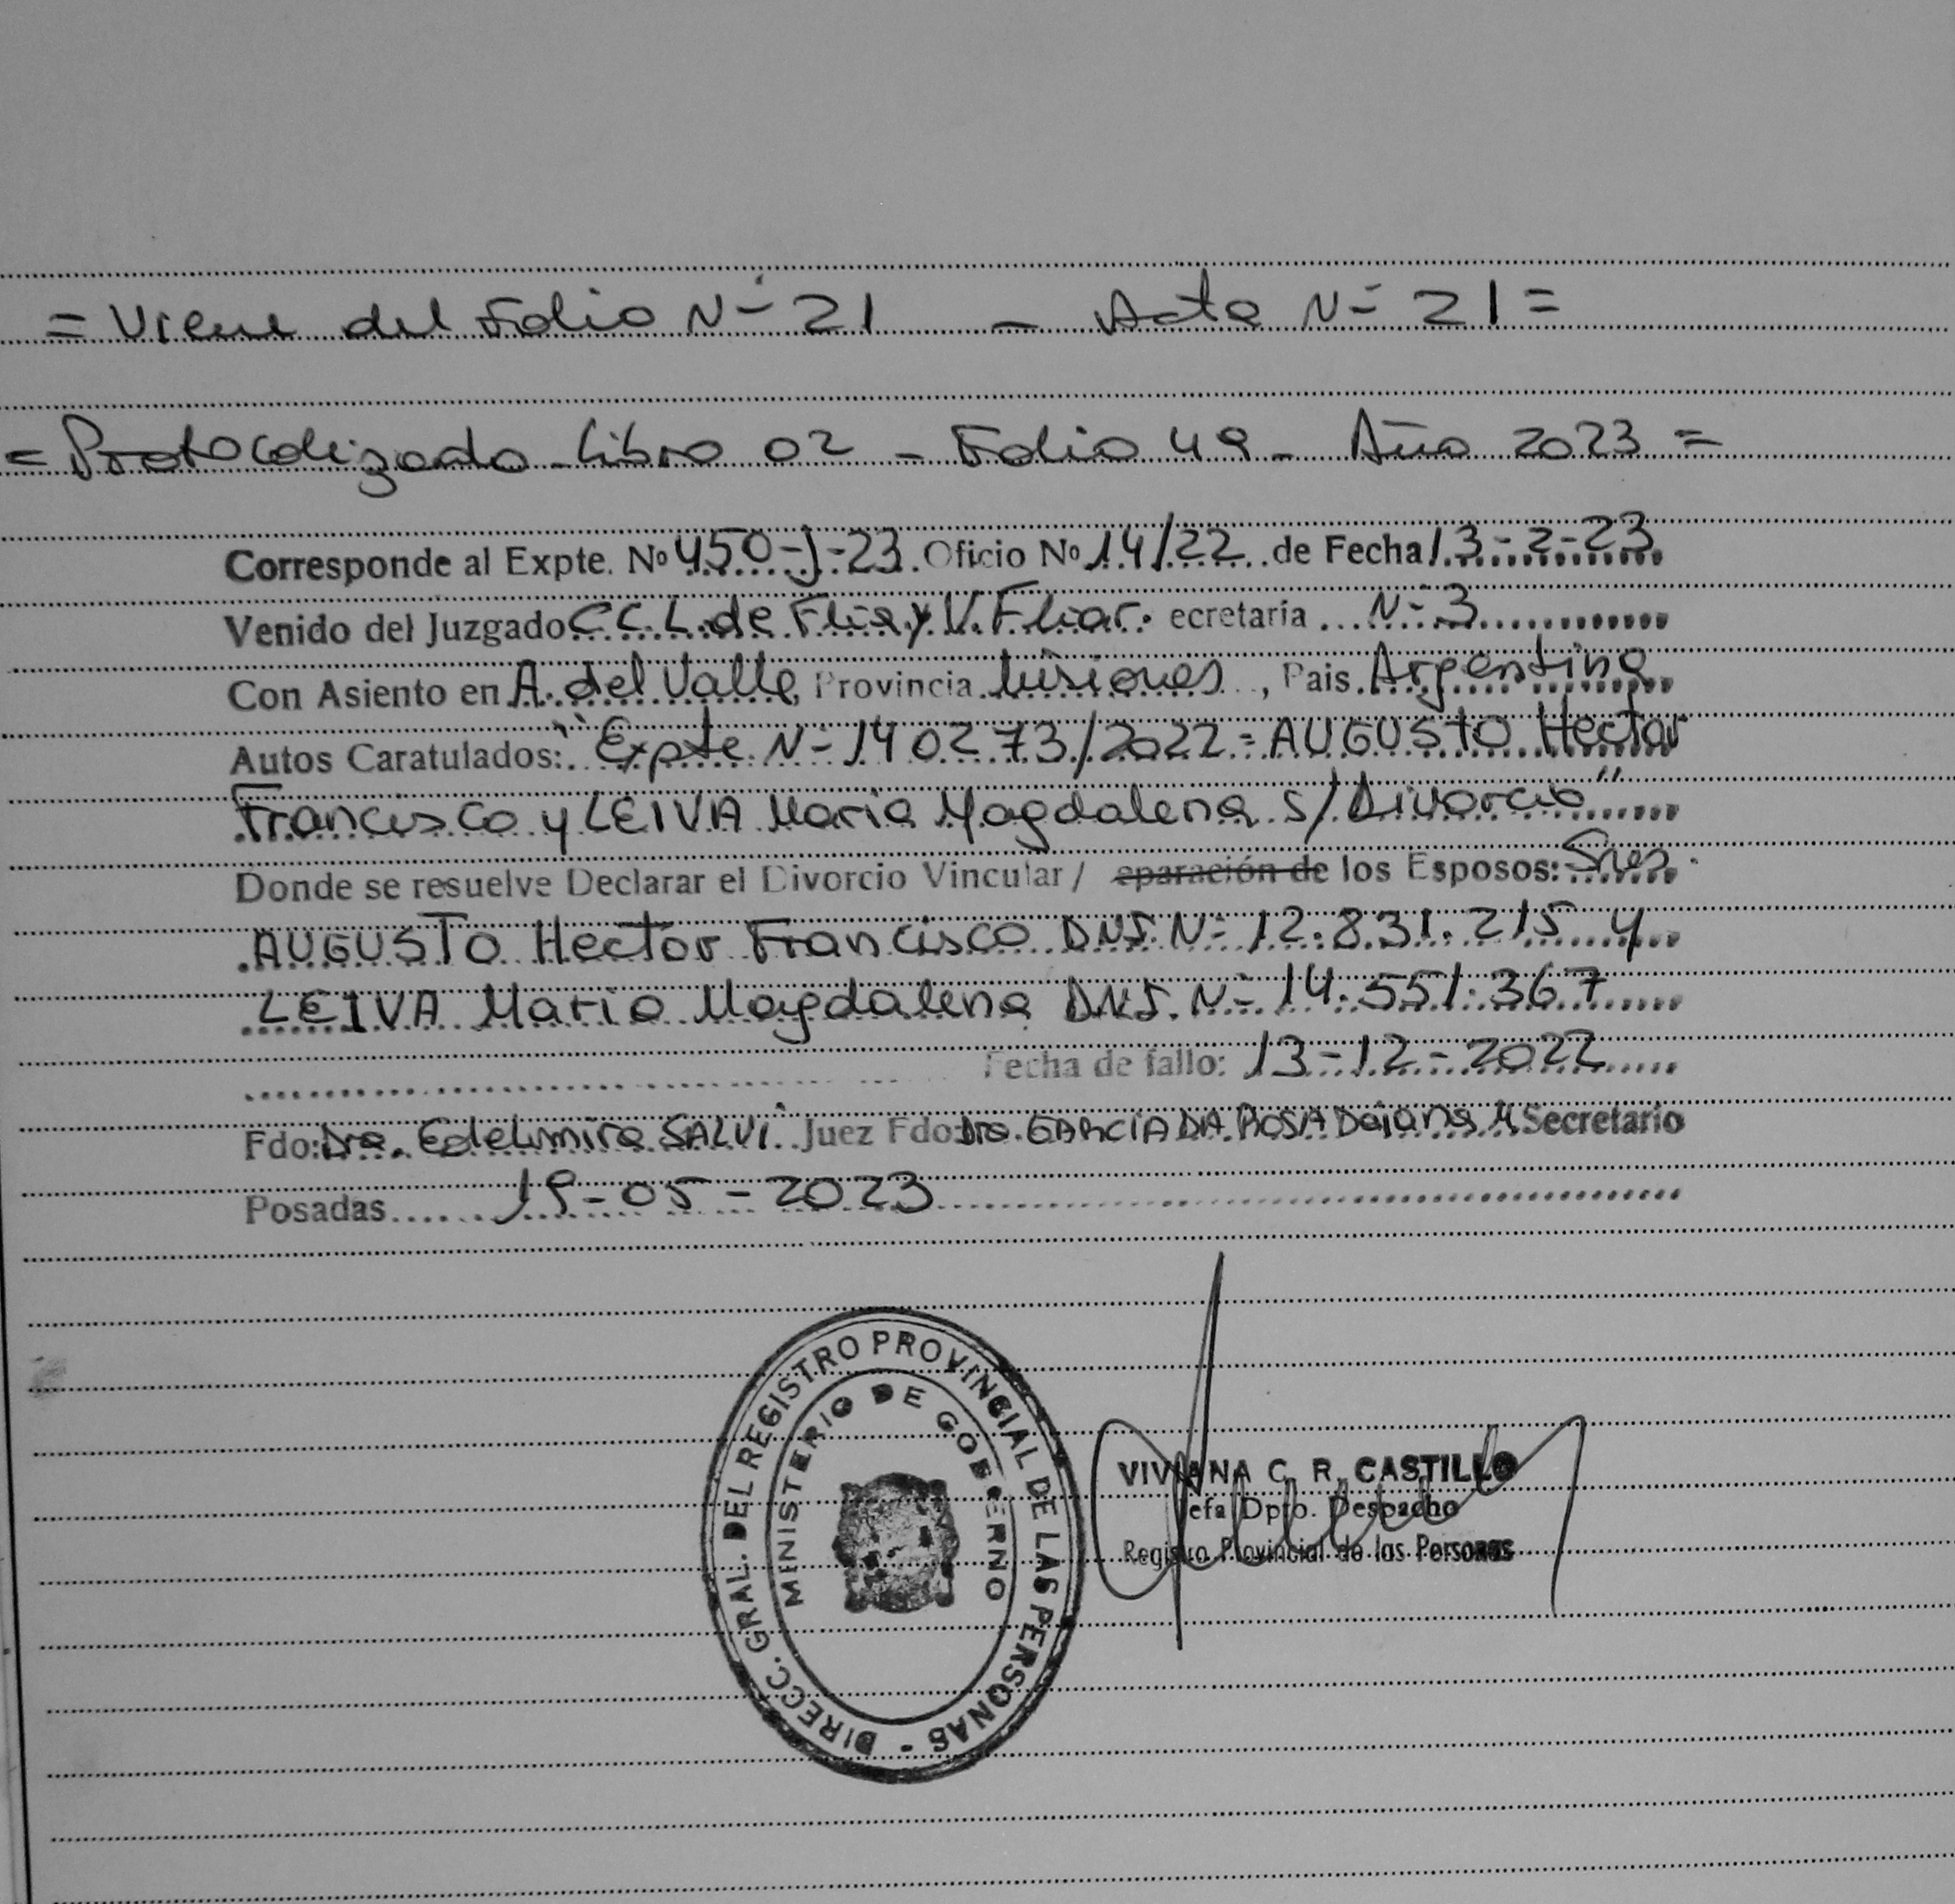 = Viene del Folio Nº 21 - Acta Nº 21 =
= Protocolizado Libro 02 - Folio 49 - Año 2023 =
Corresponde al Expte. Nº 450-J-23. Oficio Nº 14/22 de Fecha 13-2-23
Venido del Juzgado C.C.L. de Flia y V. Fliar. ecretaría Nº 3
Con Asiento en A. del Valle, Provincia Misiones, Pais Argentina
Autos Caratulados: "Expte Nº 140273/2022 = AUGUSTO Hector
Francisco y LEIVA Maria Magdalena s/ Divorcio"
Donde se resuelve Declarar el Divorcio Vincular / eparación de los Esposos: Sres.
AUGUSTO Hector Francisco DNI. Nº 12.831.215 y
LEIVA Maria Magdalena DNI. Nº 14.551.367
Fecha de fallo: 13-12-2022
Fdo: Dra. Edelmira SALVI. Juez Fdo: Dra. GARCIA DA ROSA Daiana M. Secretario
Posadas 19-05-2023
DIRECC. GRAL. DEL REGISTRO PROVINCIAL DE LAS PERSONAS -
MINISTERIO DE GOBIERNO
VIVIANA C. R. CASTILLO
Jefa Dpto. Despacho
Registro Provincial de las Personas